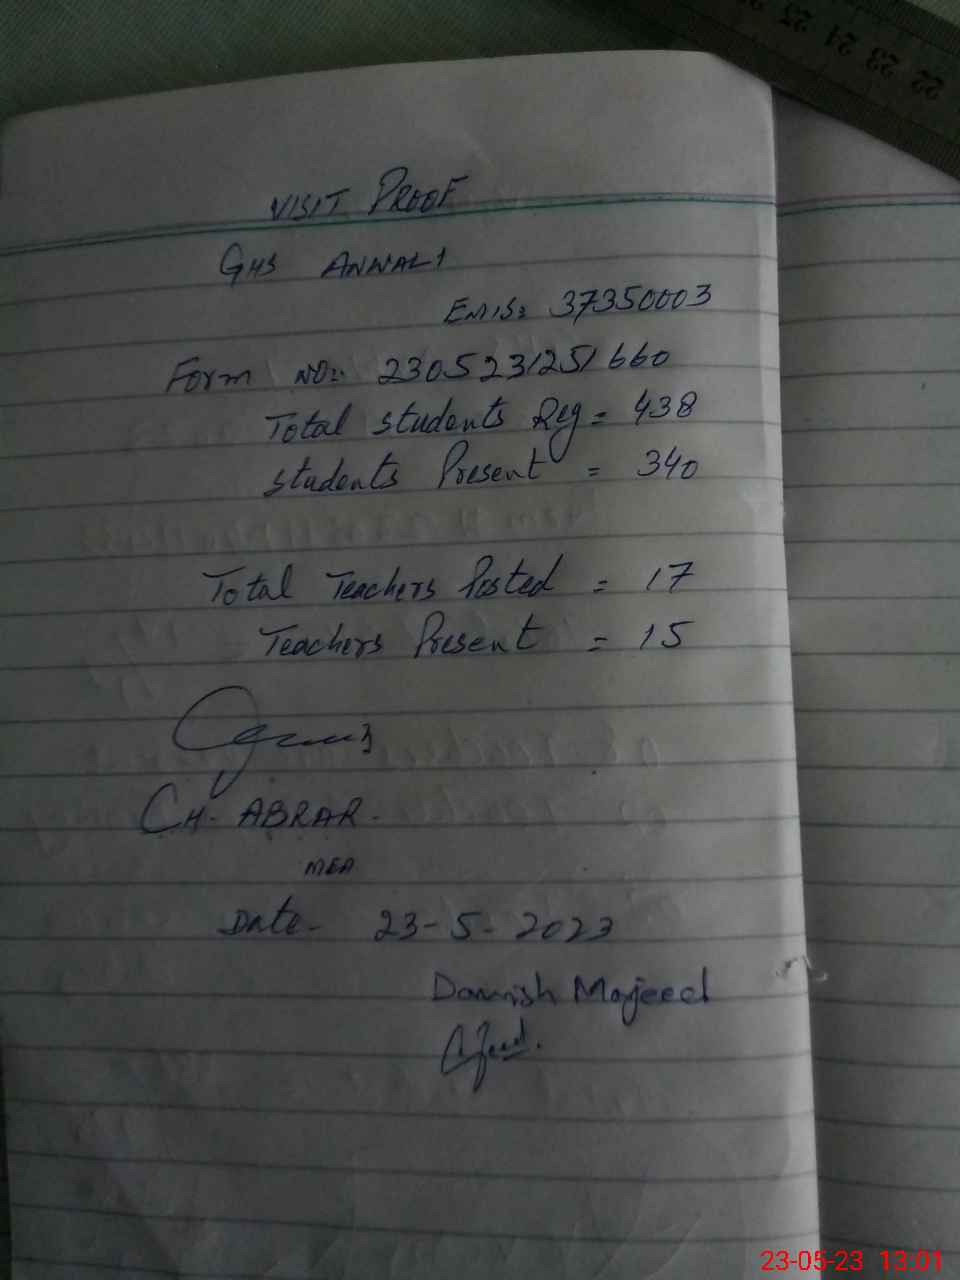 VISIT PROOF
GHS ANWALI
EMIS: 37350003
Form NO:. 2305231251660
Total students Reg = 438
students Present = 340
Total Teachers Posted = 17
Teachers Present = 15
CH. ABRAR.
MEA
Date- 23-5-2023
Dannish Majeed
22 23 24 25
23-05-23 13:01